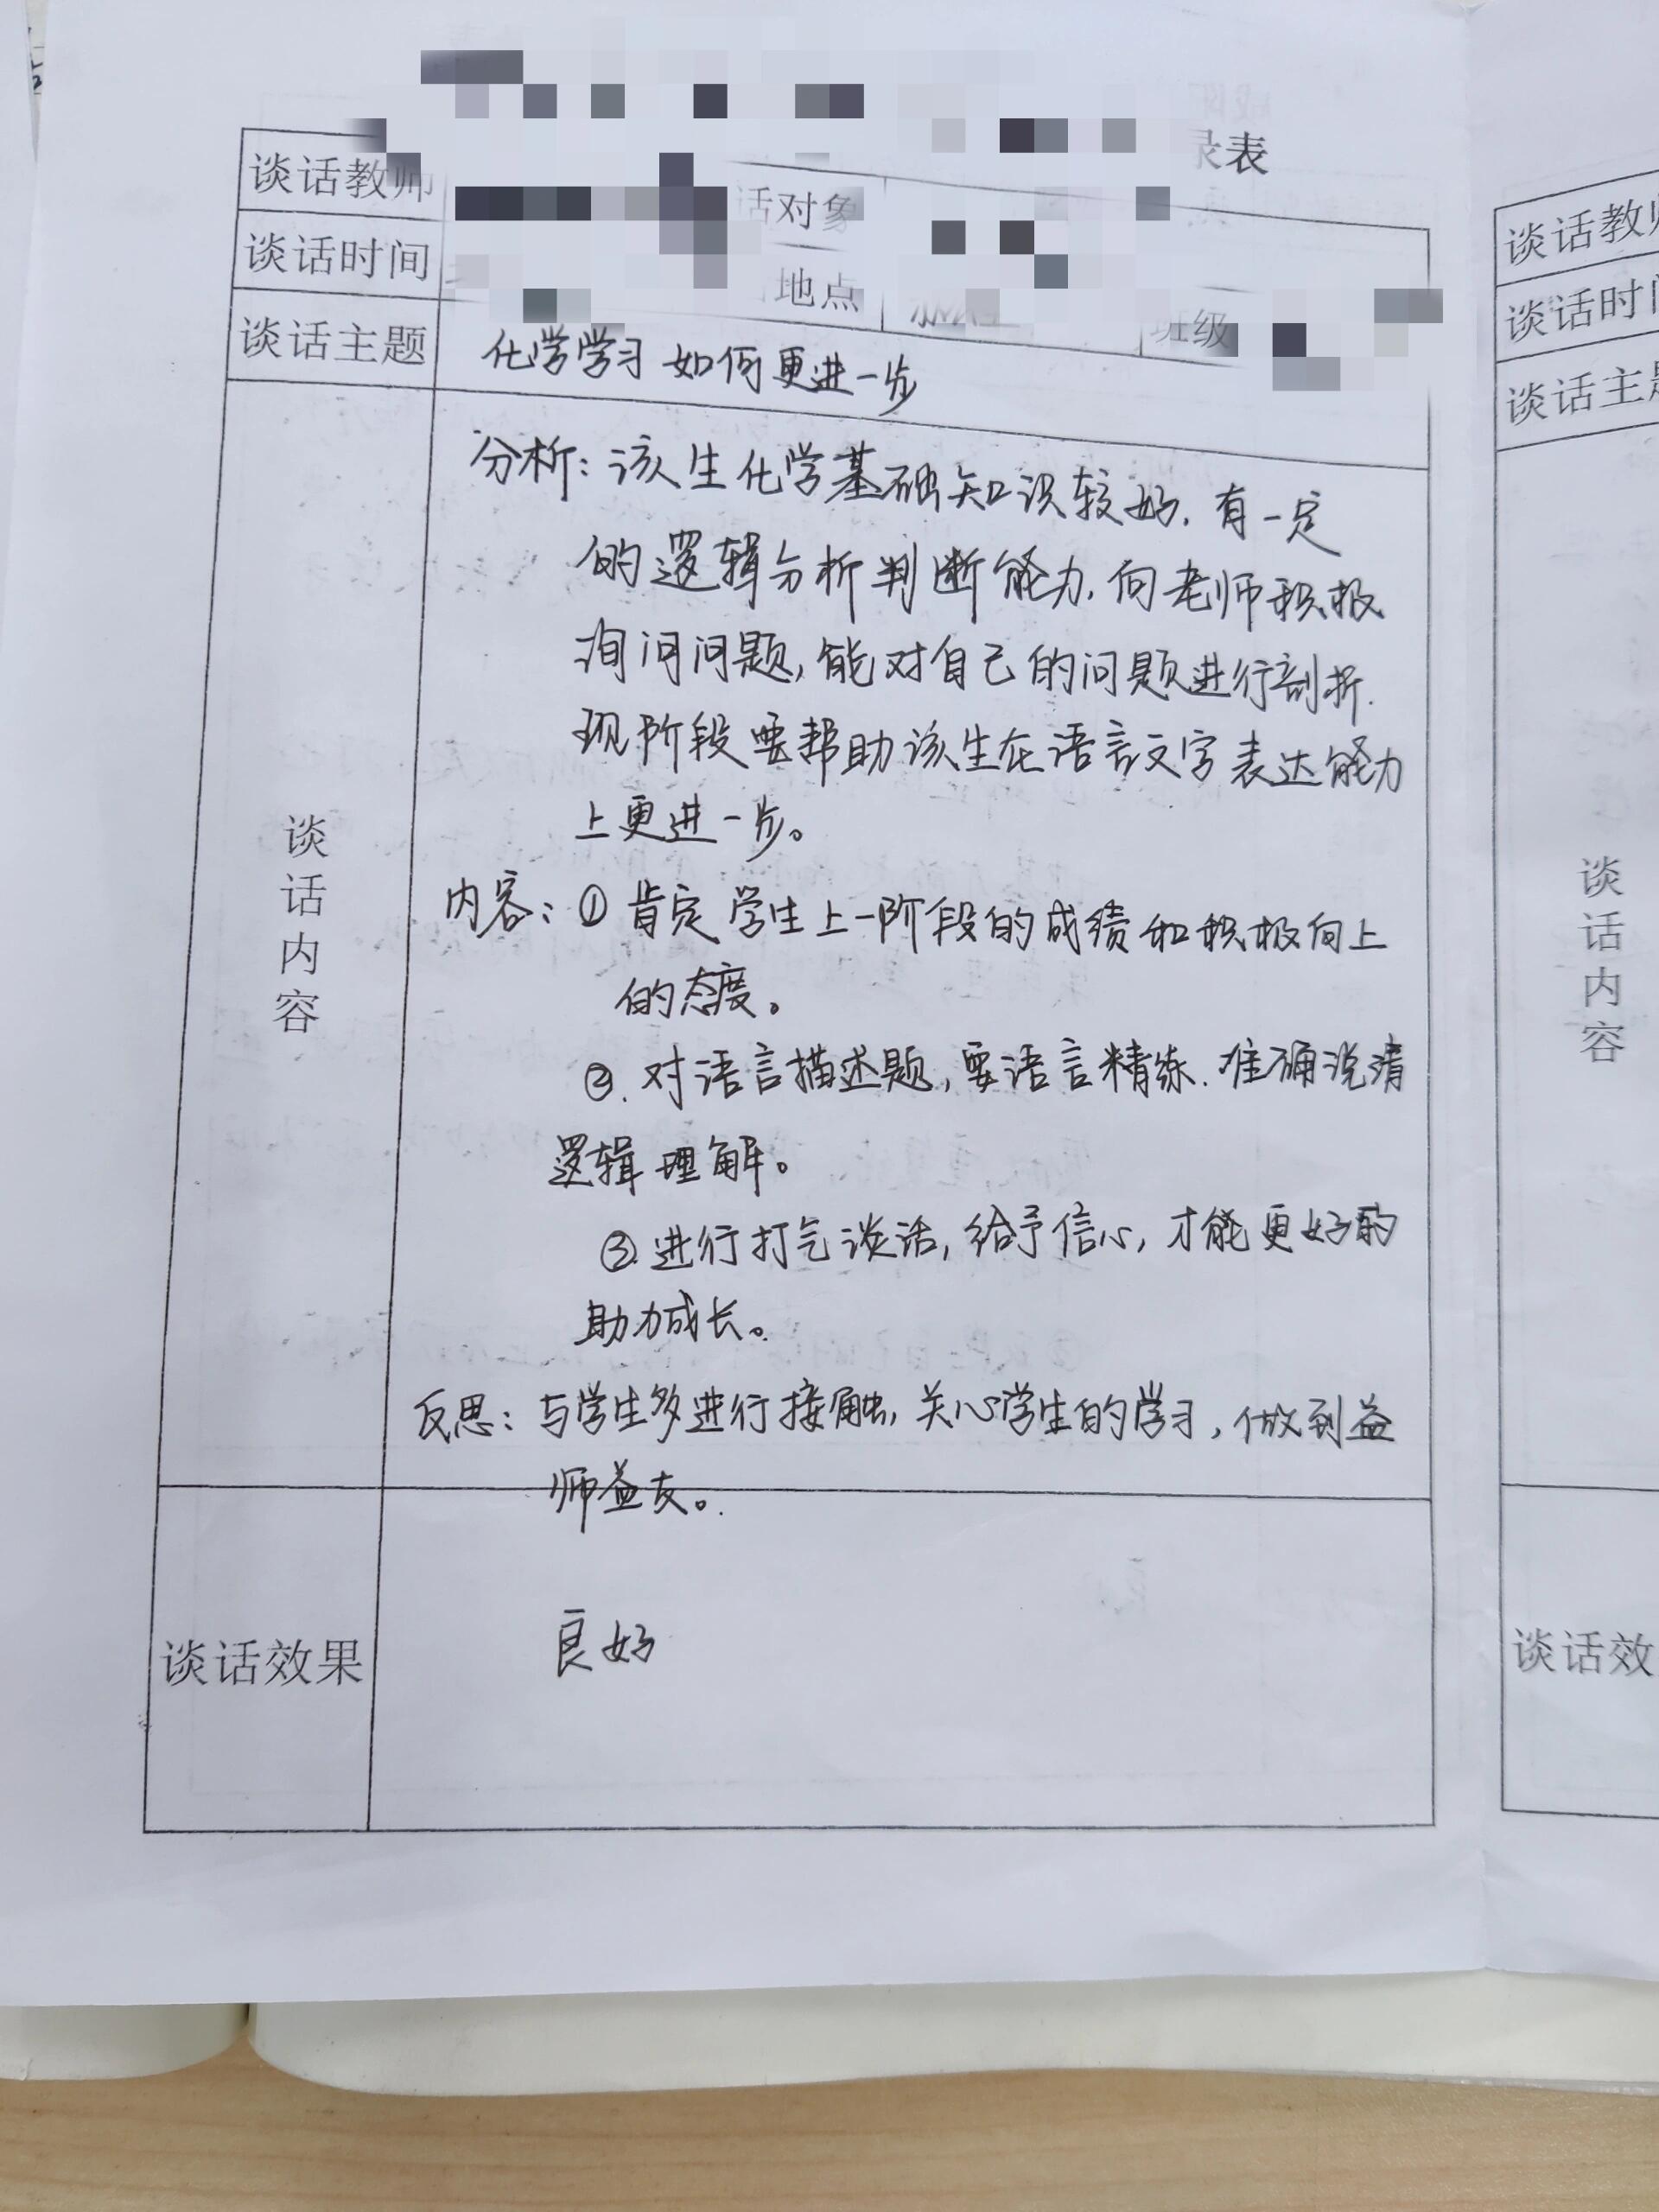 录表
谈话教师
话对象
谈话时间
地点
班级
谈话主题
化学学习 如何更进一步
谈话内容
分析：该生化学基础知识较好，有一定
的逻辑分析判断能力，向老师积极
询问问题，能对自己的问题进行剖析.
现阶段要帮助该生在语言文字表达能力
上更进一步。
内容：①肯定学生上一阶段的成绩和积极向上
的态度。
②.对语言描述题，要语言精练.准确说清
逻辑理解。
③.进行打气谈话，给予信心，才能更好的
助力成长。
反思：与学生多进行接触，关心学生的学习，做到益
师益友。
谈话效果
良好
谈话教师
谈话时间
谈话主题
谈话内容
谈话效